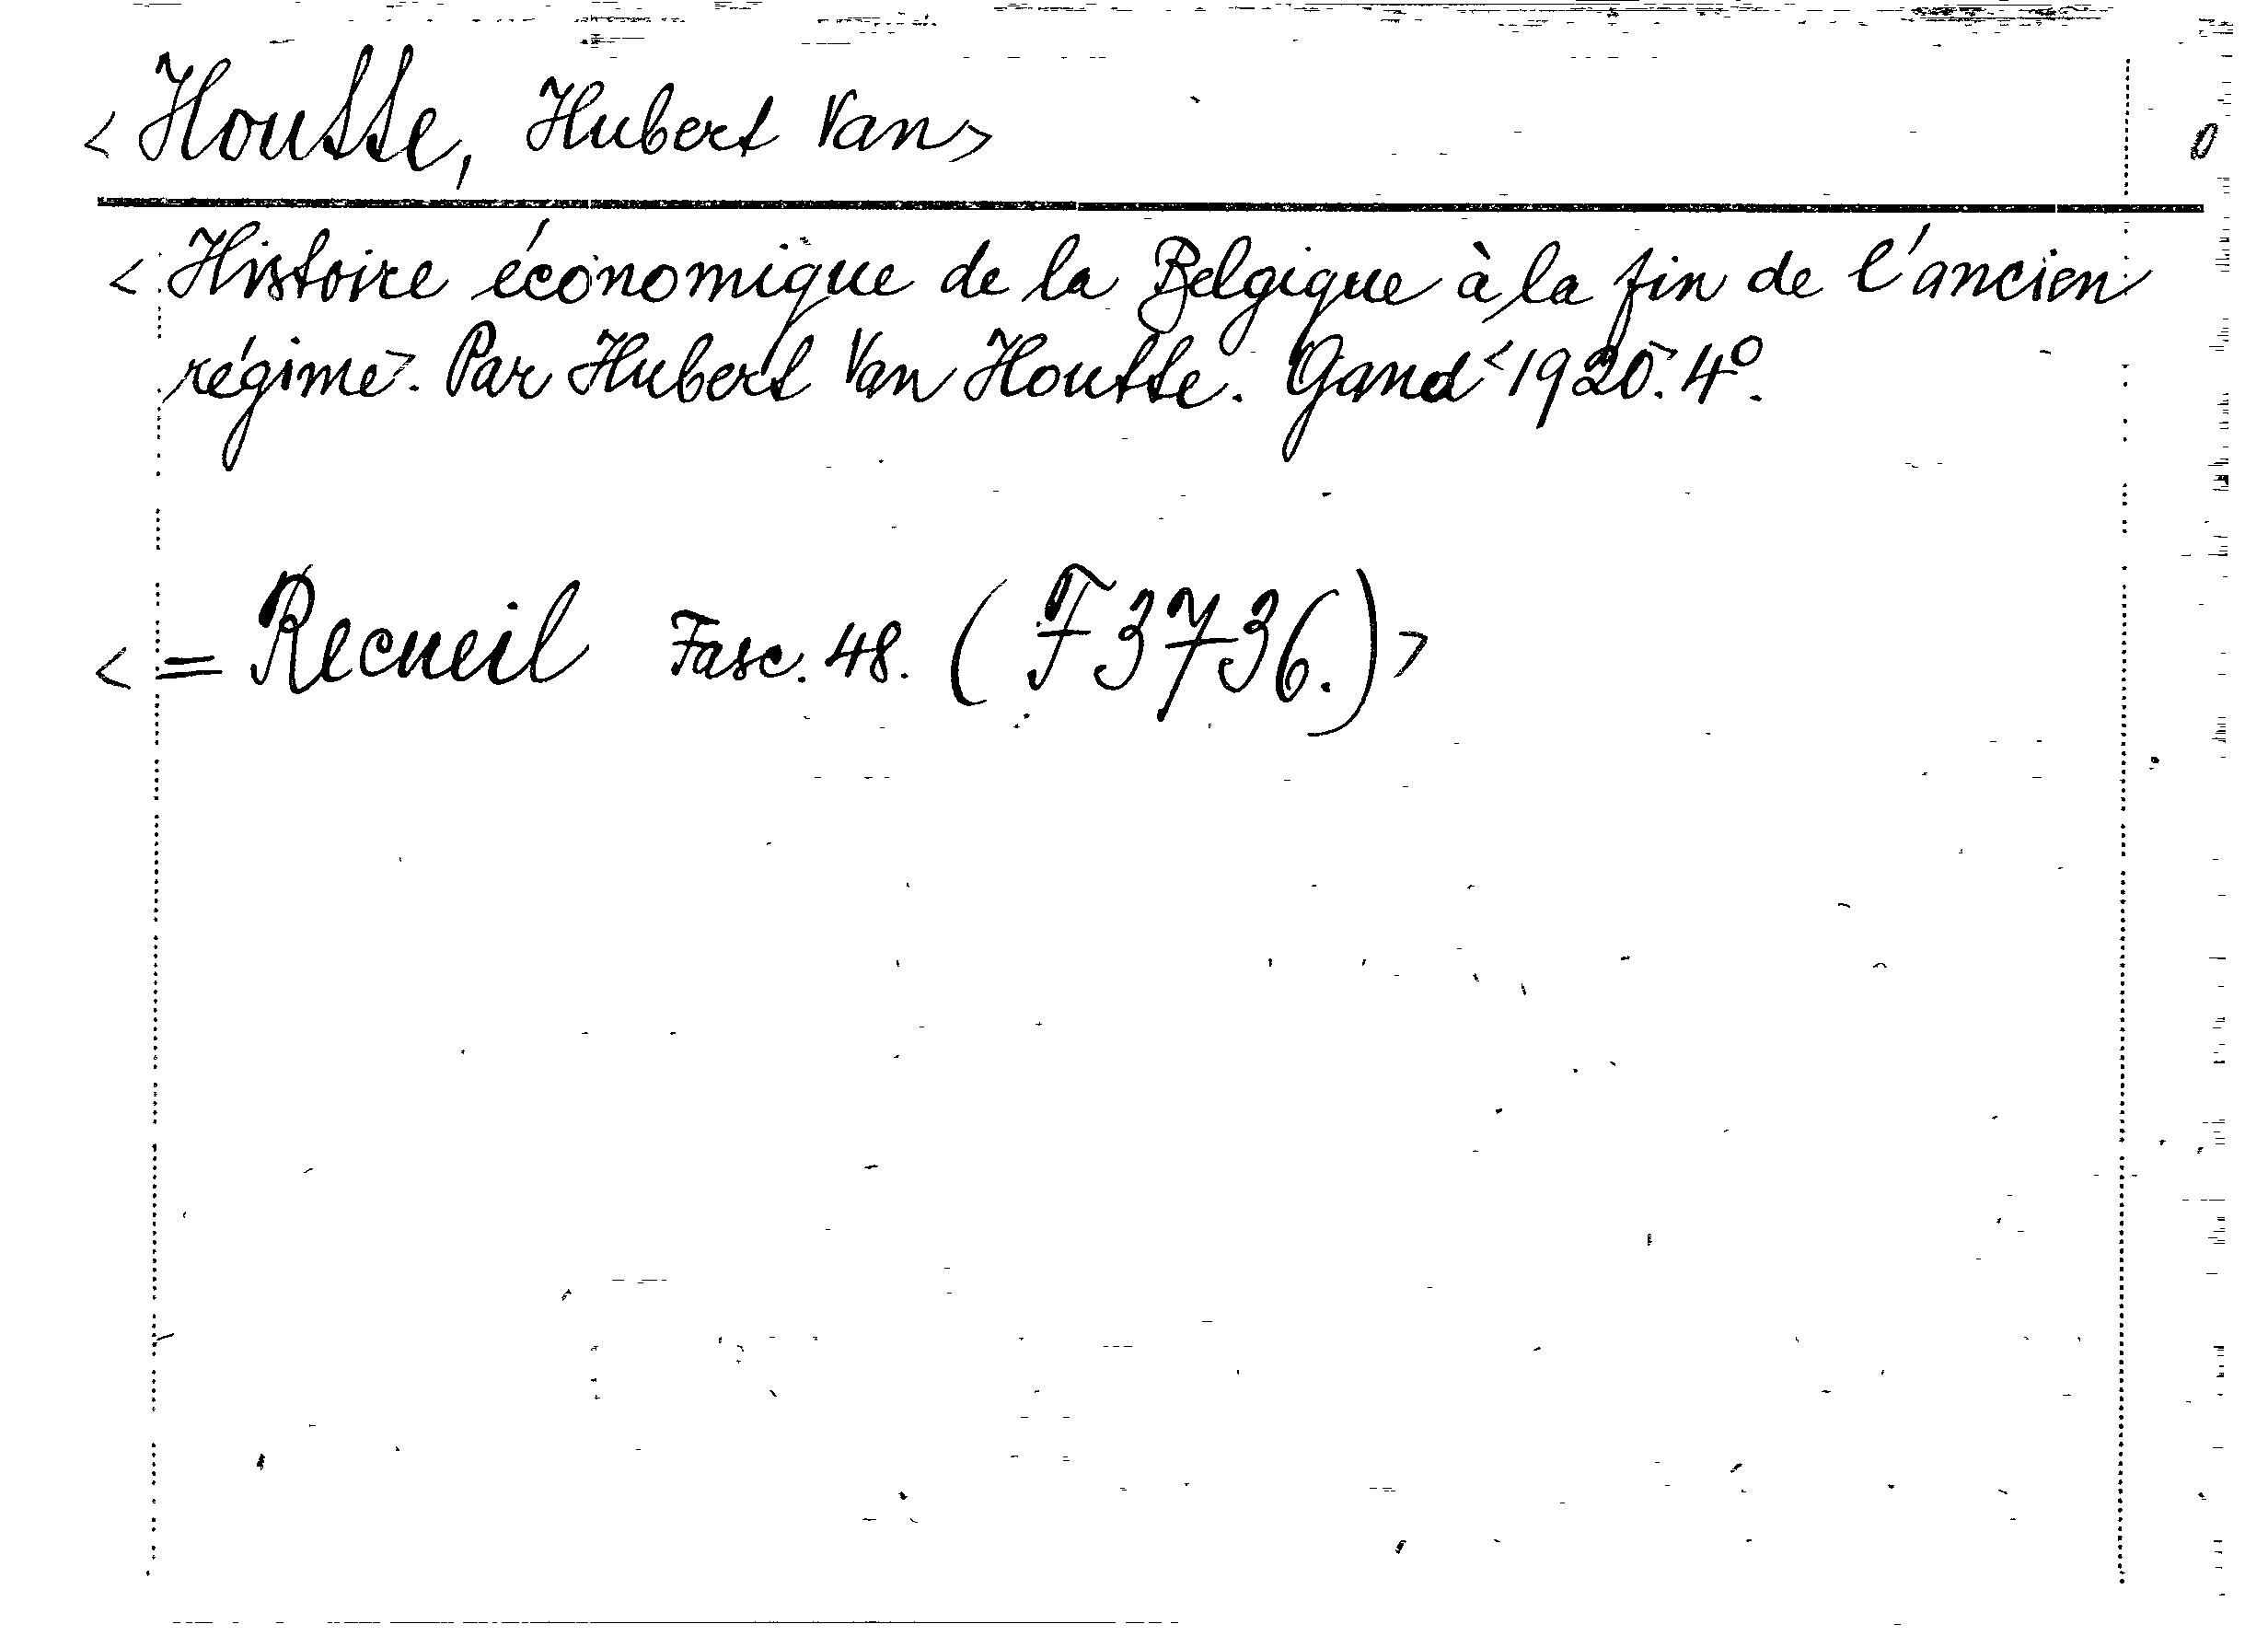 <Houtte, Hubert Van> 0
<Histoire économique de la Belgique à la fin de l'ancien
régime>. Par Hubert Van Houtte. Gand <1920>. 4°.
<= Recueil Fasc. 48. (F3736.)>